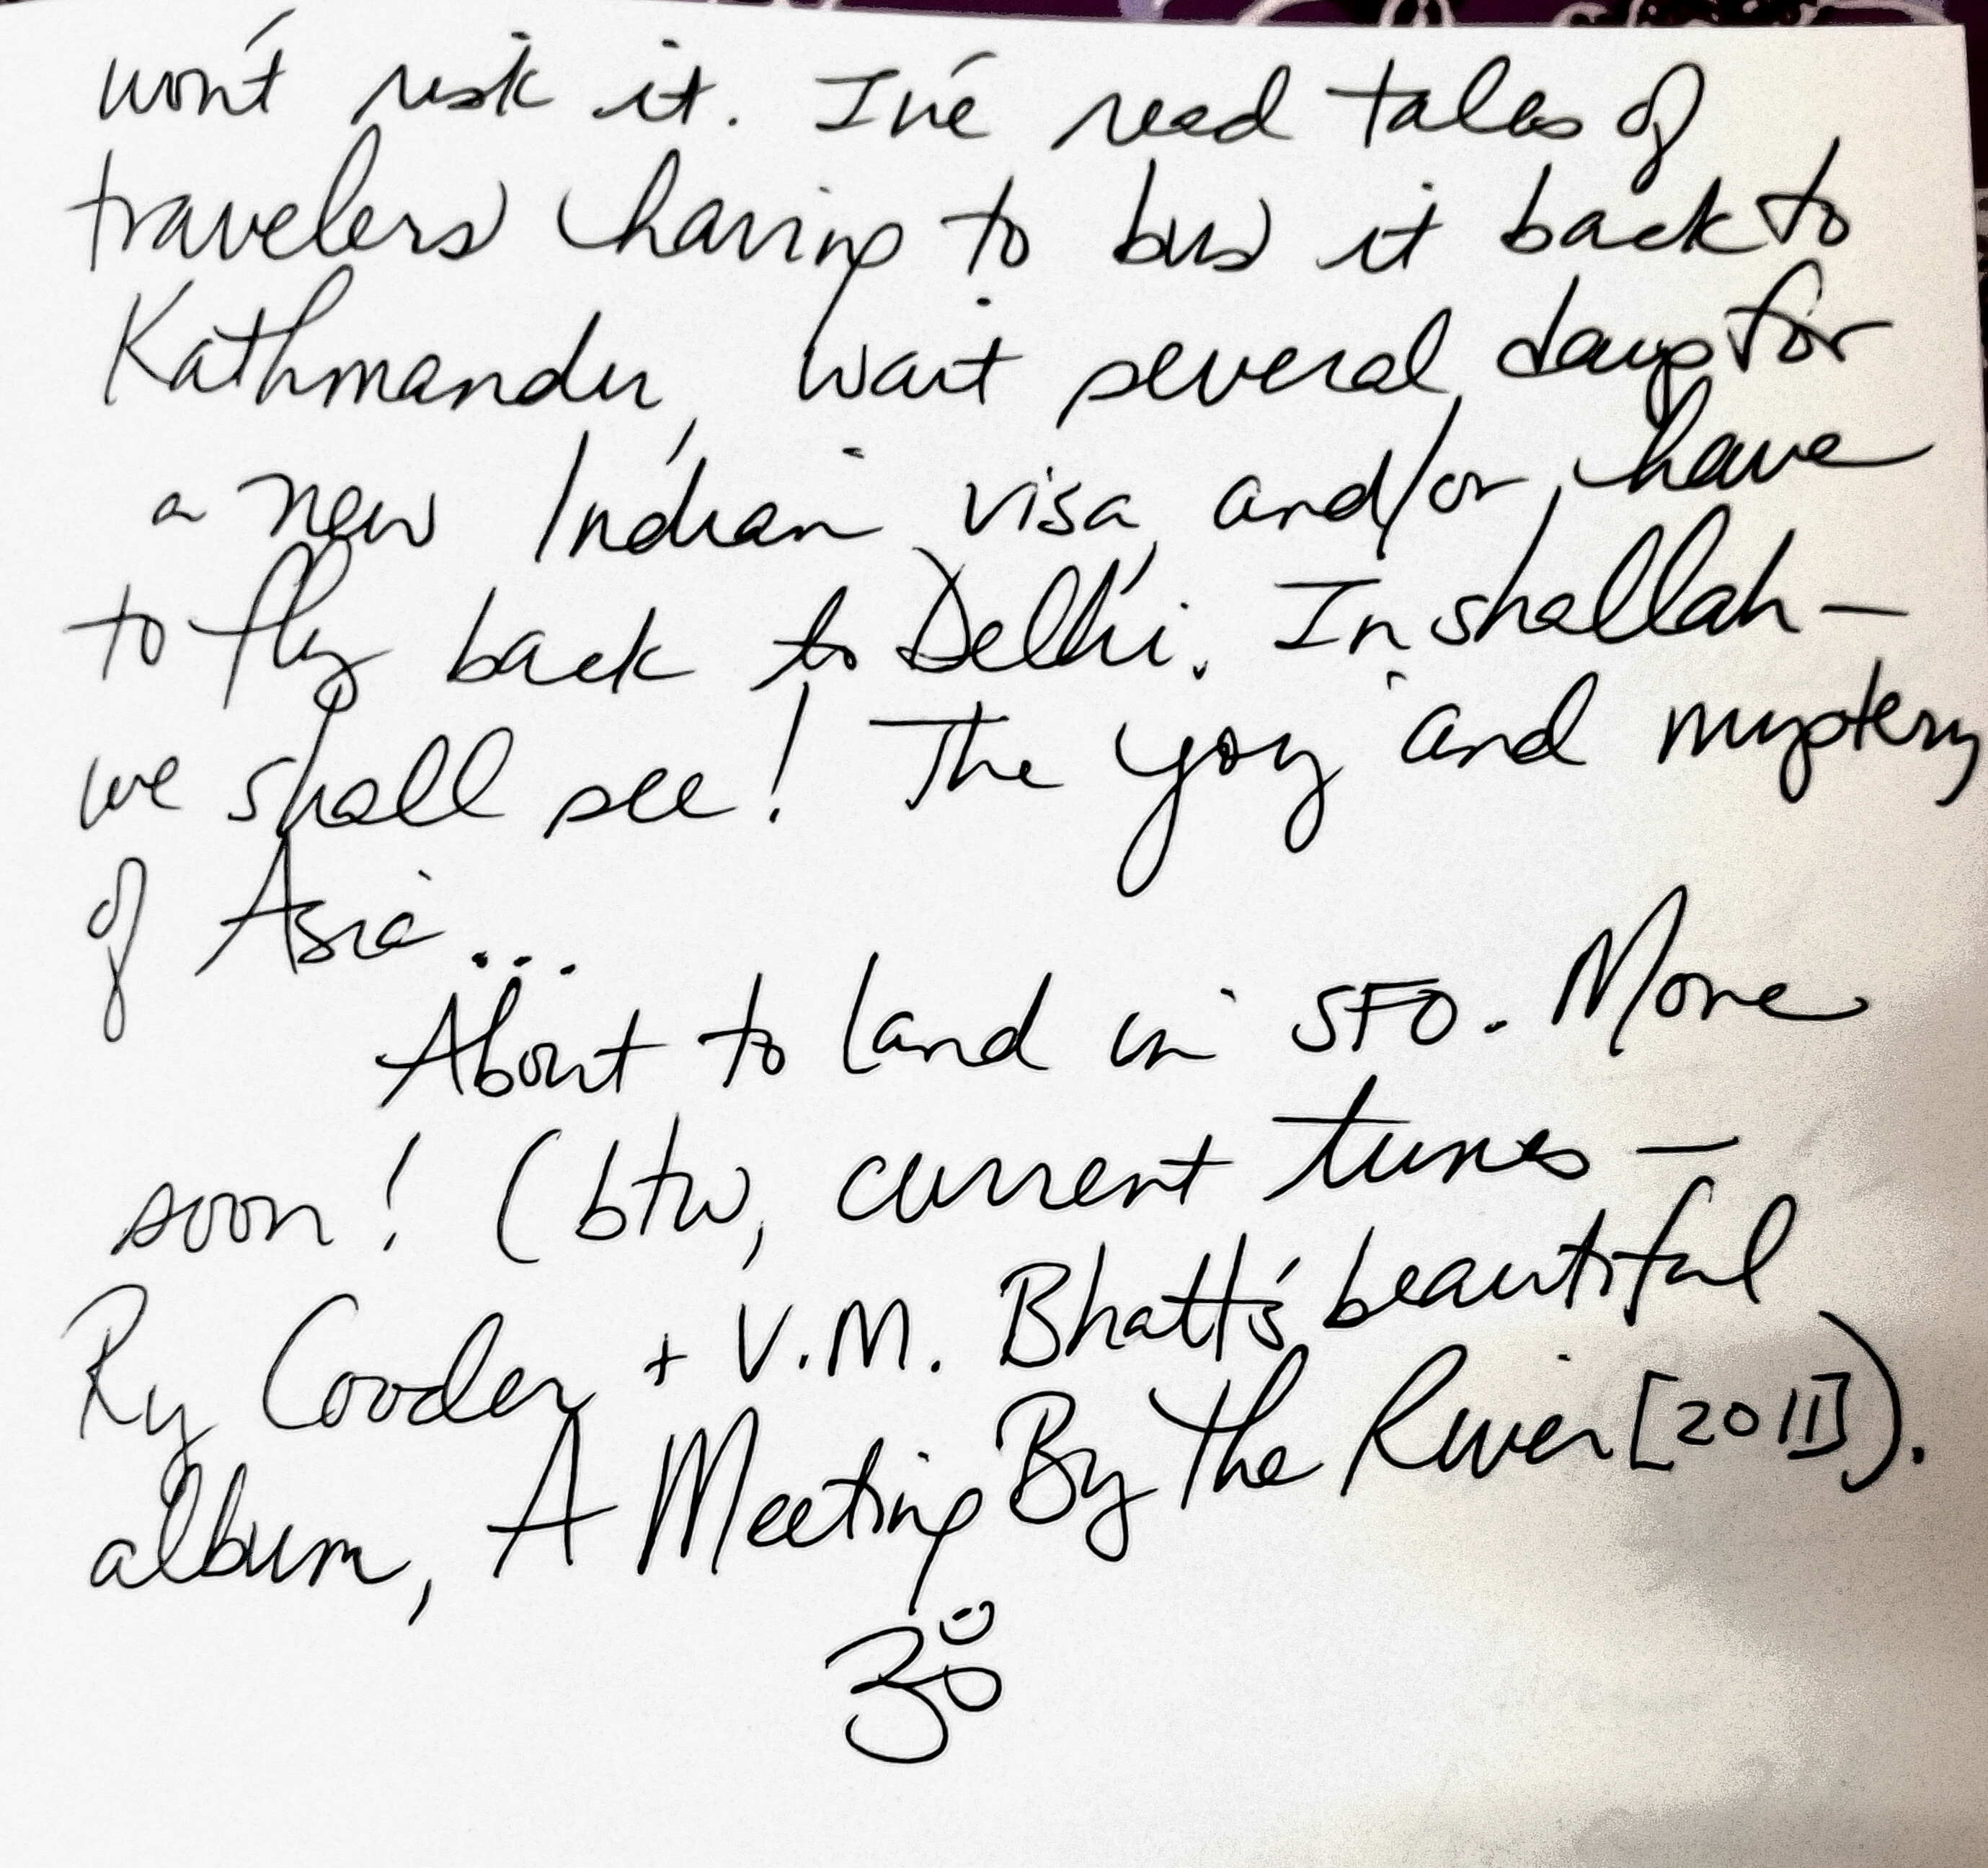 won't risk it. I've read tales of
travelers having to bus it back to
Kathmandu, wait several days for
a new Indian visa, and/or have
to fly back to Delhi. Inshallah —
we shall see! The yoy and mystery
of Asia...
About to land in SFO. More
soon! (btw, current tunes —
Ry Cooder + V.M. Bhatt's beautiful
album, A Meeting By The River [2011]).
ॐ